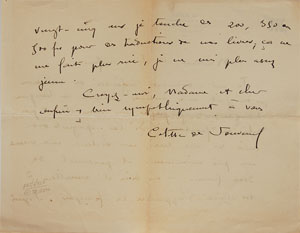 vingt-cinq ans je touche des 200, 350 ou
500 frs pour des traductions de mes livres, ça ne
me fait plus rire, je ne suis plus assez
jeune.
Croyez-moi, Madame et cher
enfin, bien sympathiquement à vous
Colette de Jouvenel